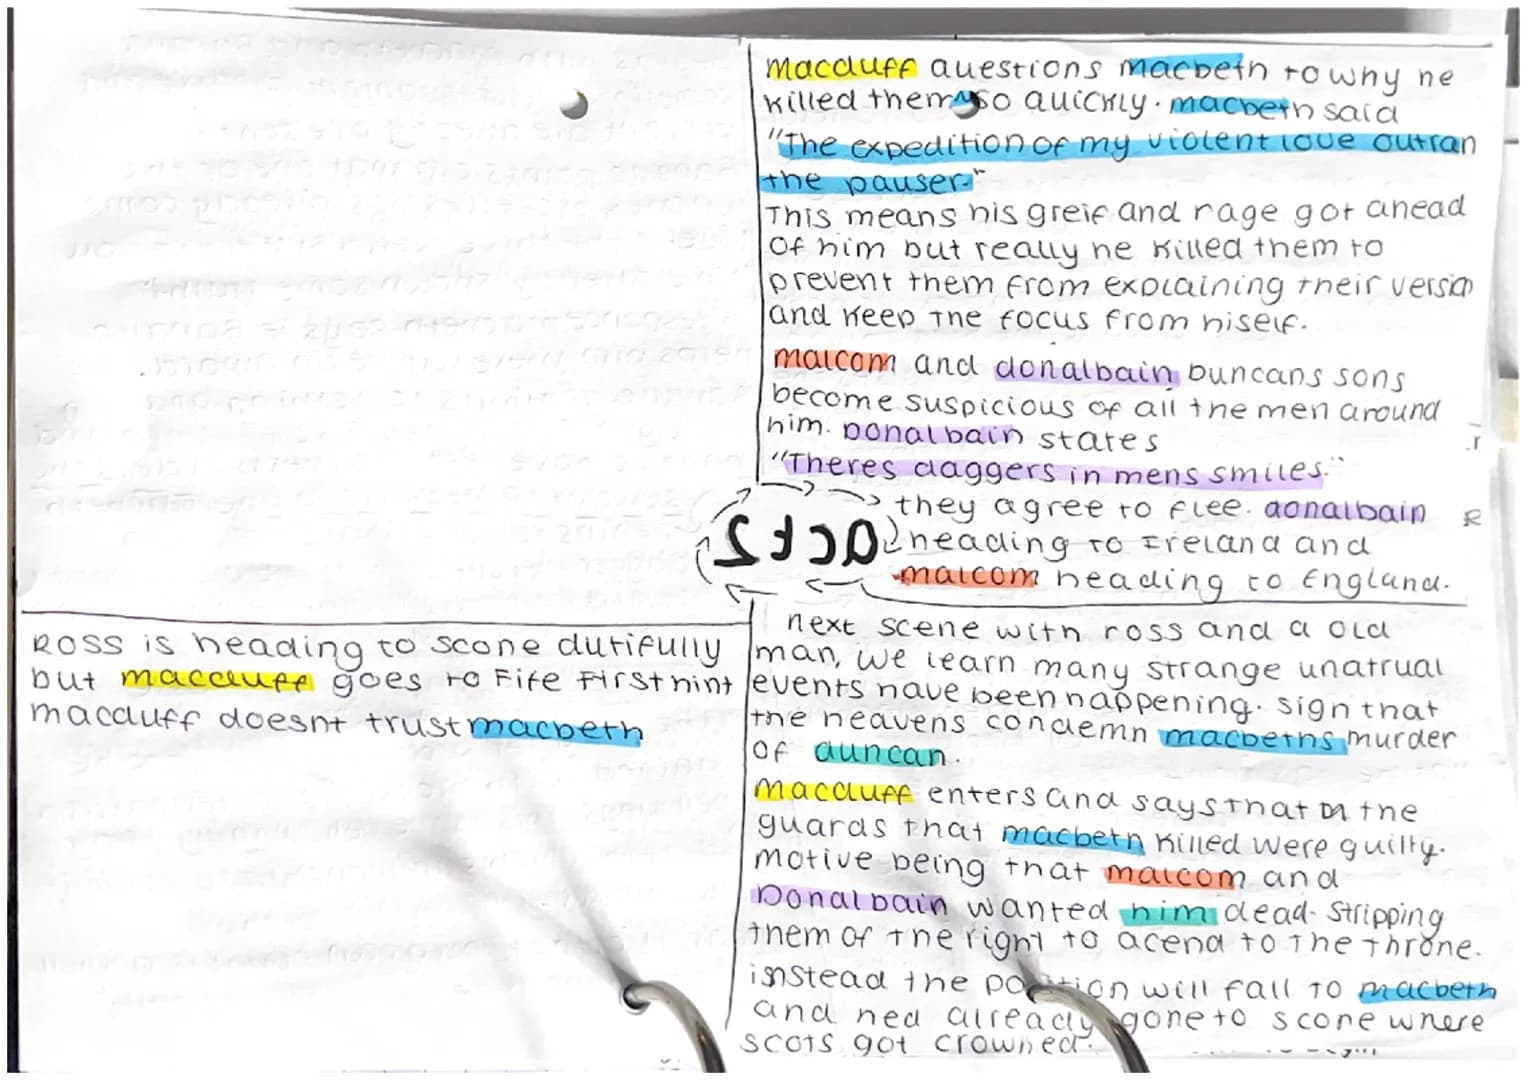 macduff questions macbeth to why he
killed them so quickly. macbeth said
"The expedition of my violent love outran
the pauser."
This means his greif and rage got ahead
of him but really he killed them to
prevent them from explaining their version
and keep the focus from hiself.
malcom and donalbain Duncans sons
become suspicious of all the men around
him. Donalbain states
"Theres daggers in mens smiles."
they agree to flee. donalbain
heading to Ireland and
malcom heading to England.
act 2
next scene with ross and a old
man, we learn many strange unatrual
events have been happening. sign that
the heavens condemn macbeths murder
of duncan.
macduff enters and says that the
guards that macbeth killed were guilty.
motive being that malcom and
Donalbain wanted him dead. Stripping
them of the right to acend to the throne.
instead the position will fall to macbeth
and hed already gone to scone where
scots got crowned.
Ross is heading to scone dutifully
but macduff goes to Fife first hint
macduff doesnt trust macbeth